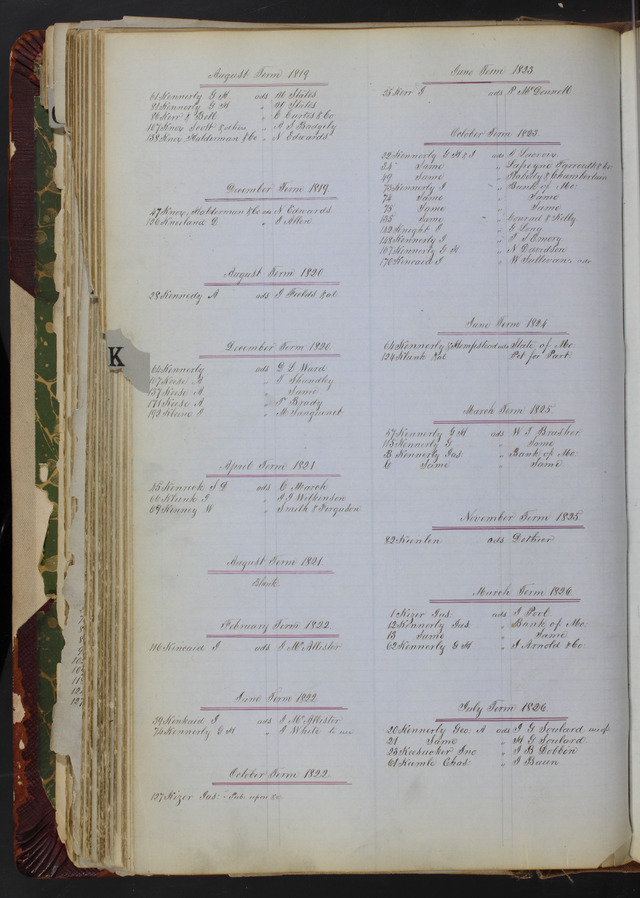 August Term 1819
61 Kennerly G H ads U States
81 Kennerly G H " U States
86 Kerr & Bell " C Carles & Co
107 Knox Scott & others " A J Badgely
138 Knox Halderman & Co " N Edwards
December Term 1819
47 Knox, Halderman & Co ads N Edwards
130 Kneeland D " J Allen
August Term 1820
28 Kennedy A ads J Fields & al
December Term 1820
64 Kennerly ads D L Ward
107 Keese A " J Shandley
157 Keese A " Same
171 Keese A " P Brady
192 Kleine J " M Sanguinet
April Term 1821
45 Kenrick S D ads C March
60 Klunk J " J J Wilkinson
64 Kenney W " Smith & Ferguson
August Term 1821.
Blank.
February Term 1822.
116 Kincaid J ads J McAllister
June Term 1822
39 Kinkaid J ads J McAllister
74 Kennerly G H " J White to use
October Term 1822
127 Kizer Jas
K
June Term 1823
25 Kerr J ads P McDonnell
October Term 1823.
32 Kennerly G H & J ads
34 Same "
49 Same " & Chamberlain
73 Kennerly J " Bank of Mo.
74 Same " Same
75 Same " Same
135 Same " Conrad & Kelly
139 Knight J " E Long
148 Kennerly J " P J Emory
167 Kennerly G H " N Davidson
170 Kincaid J " W Sullivan adm
June Term 1824
64 Kennerly & Hempstead ads State of Mo.
124 Klunk & al Pet for Part.
March Term 1825
57 Kennerly G H ads W J Brasher
115 Kennerly G " Same
B Kennerly Jas " Bank of Mo.
C Same " Same.
November Term 1825
82 Keenlen ads Dethier
March Term 1826
1 Kizer Jas. ads J Pool
12 Kennerly Jas. " Bank of Mo.
13 Same " Same
62 Kennerly G H " J Arnold & Co
July Term 1826
20 Kennerly Geo. H ads J G Soulard &wife
21 Same " H G Soulard
23 " J B Dobben
61 Keemle Chas. " J Baun